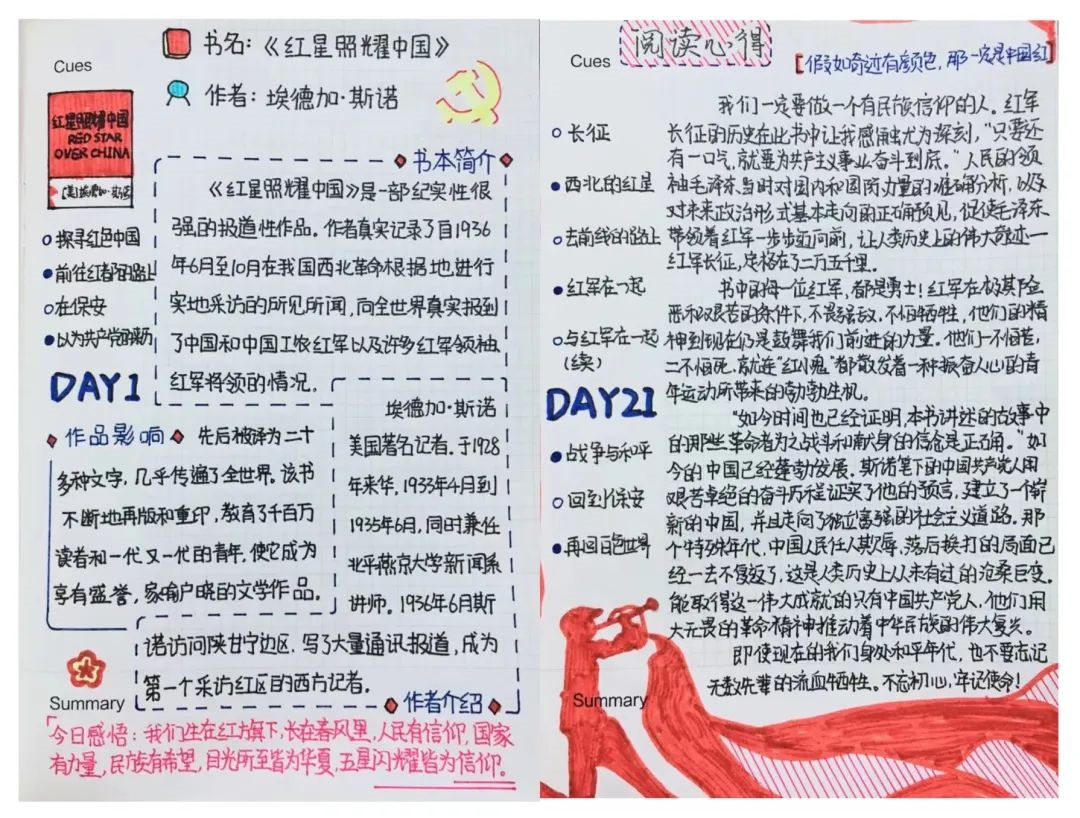 Cues
书名：《红星照耀中国》
作者：埃德加·斯诺
红星照耀中国
RED STAR
OVER CHINA
[美]埃德加·斯诺
探寻红色中国
前往红都的路上
在保安
以为共产党的来历
DAY1
书本简介
《红星照耀中国》是一部纪实性很
强的报道性作品。作者真实记录了自1936
年6月至10月在我国西北革命根据地进行
实地采访的所见所闻，向全世界真实报到
了中国和中国工农红军以及许多红军领袖、
红军将领的情况。
作品影响
先后被译为二十
多种文字，几乎传遍了全世界。该书
不断地再版和重印，教育了千百万
读者和一代又一代的青年，使它成为
享有盛誉，家喻户晓的文学作品。
埃德加·斯诺
美国著名记者。于1928
年来华，1933年4月到
1935年6月，同时兼任
北平燕京大学新闻系
讲师。1936年6月斯
诺访问陕甘宁边区，写了大量通讯报道，成为
第一个采访红区的西方记者。
作者介绍
Summary
「今日感悟：我们生在红旗下，长在春风里，人民有信仰，国家
有力量，民族有希望，目光所至皆为华夏，五星闪耀皆为信仰。
Cues
阅读心得
[假如奇迹有颜色，那一定是中国红]
长征
西北的红星
去前线的路上
红军在一起
与红军在一起
（续）
DAY21
战争与和平
回到保安
再回白色世界
我们一定要做一个有民族信仰的人。红军
长征的历史在此书中让我感触尤为深刻，“只要还
有一口气，就要为共产主义事业奋斗到底。”人民的领
袖毛泽东当时对国内和国际力量的准确分析，以及
对未来政治形式基本走向的正确预见，促使毛泽东
带领着红军一步步迈向前，让人类历史上的伟大奇迹—
红军长征，定格在了二万五千里。
书中的每一位红军，都是勇士！红军在极其险
恶和艰苦的条件下，不畏强敌，不怕牺牲，他们的精
神到现在仍是鼓舞我们前进的力量。他们一不怕苦，
二不怕死，就连“红小鬼”都散发着一种振奋人心的青
年运动所带来的勃勃生机。
“如今时间也已经证明，本书讲述的故事中
的那些革命者为之战斗和献身的信念是正确。”如
今的中国已经蓬勃发展。斯诺笔下的中国共产党人用
艰苦卓绝的奋斗历程证实了他的预言，建立了一个崭
新的中国，并且走向了独立富强的社会主义道路。那
个特殊年代，中国人民任人欺辱，落后挨打的局面已
经一去不复返了，这是人类历史上从未有过的沧桑巨变。
能取得这一伟大成就的只有中国共产党人，他们用
大无畏的革命精神推动着中华民族的伟大复兴。
即使现在的我们身处和平年代，也不要忘记
无数先辈的流血牺牲。不忘初心，牢记使命！
Summary